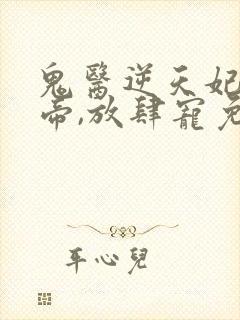 鬼醫逆天妃
帝,放肆寵
平心兒